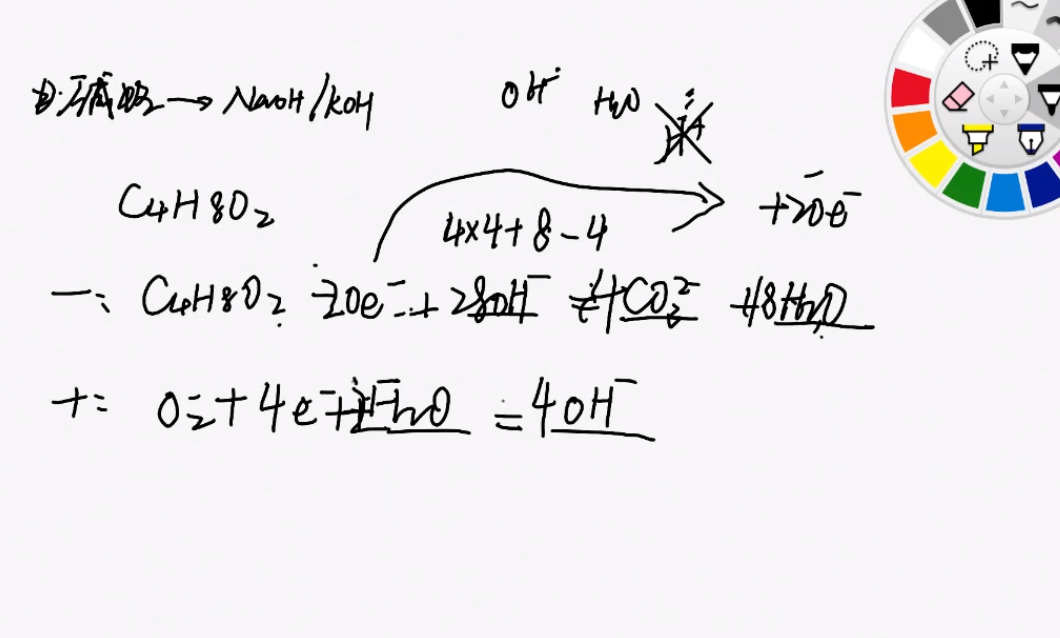 ①碱性→NaOH/KOH OH⁻ H₂O H⁺
C₄H₈O₂ 4×4+8-4 +20e⁻
一: C₄H₈O₂ -20e⁻+28OH⁻=4CO₃²⁻+18H₂O
+: O₂+4e⁻+2H₂O=4OH⁻